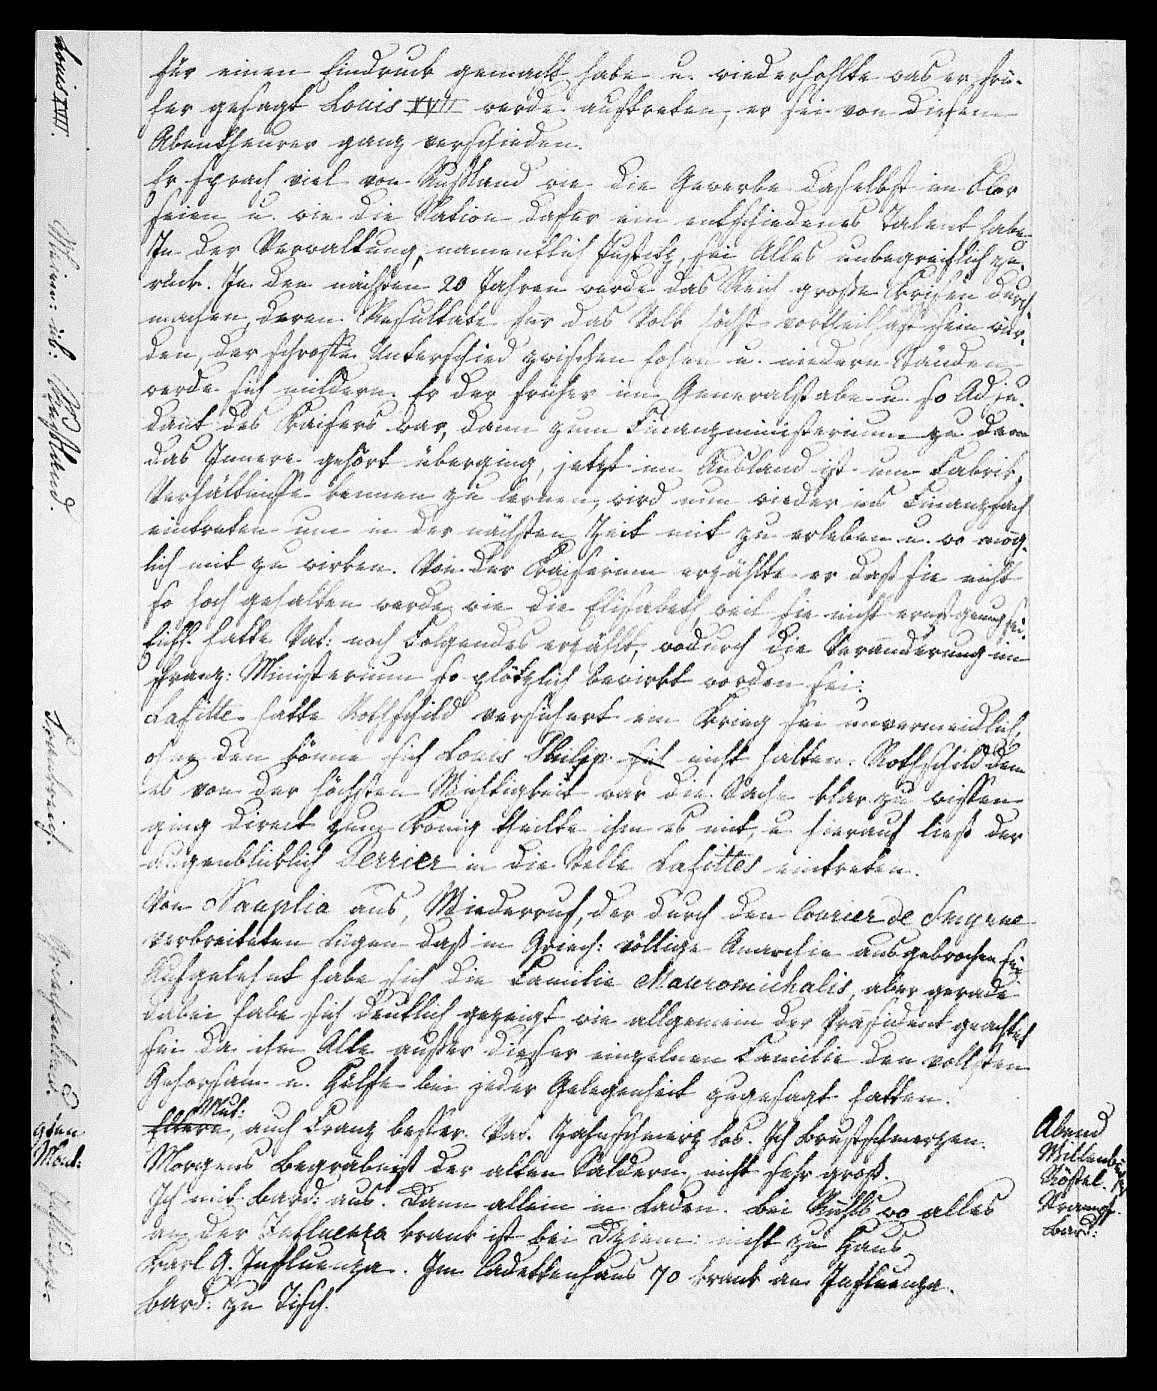 Louis XVII.
für einen Eindruck gemacht habe u. wiederhohlte was er frü-
her gesagt Louis XVII werde auftreten, er sei von diesem
Abentheurer ganz verschieden.
Er sprach viel von Rußland wie die Gewerbe daselbst im Flor
seien u. wie die Nation dafür ein entschiedenes Talent habe.
In der Verwaltung, namentlich Justitz, sei Alles unbegreiflich zu-
rück. In den nächsten 20 Jahren werde das Reich große Krisen durch
machen, deren Resultate für das Volk höchst vortheilhaft sein wür-
den, der schroffe Unterschied zwischen hohen u. niedern Ständen
werde sich mildern. Er der früher im Generalstabe u. so Adju-
dant des Kaisers war, dann zum Finanzministerium zu dem
das Innere gehört überging, jetzt im Ausland ist um Fabrik,
Verhältnisse kennen zu lernen, wird nun wieder ins Finanzfach
eintreten um in der nächsten Zeit mit zu erleben u. wo mög-
lich mit zu wirken. Von der Kaiserinn erzählte er daß sie nicht
so hoch gehalten werde wie die Elisabeth, weil sie nicht ernst genug sei.
hatte Vat: noch Folgendes erzählt, wodurch die Veränderung im
franz: Ministerium so plötzlich bewirkt worden sei:
Lafitte hatte Rothschild versichert ein Krieg sei unvermeidlich,
ohne den könne sich Louis Philipp sich nicht halten. Rothschild dem
es von der höchsten Wichtigkeit war die Sache klar zu wissen
ging direct zum König theilte ihm es mit u. hierauf ließ der
augenblicklich Perrier in die Stelle Lafittes eintreten.
Von Nauplia aus, Wiederruf, der durch den Courier de Smyrne
verbreiteten Lügen daß in Griech: völlige Anarchie ausgebrochen sei
Aufgelehnt habe sich die Familie Mauromichalis, aber gerade
dabei habe sich deutlich gezeigt wie allgemein der Präsident geachtet
sei da ihm Alle außer dieser einzelnen Familie den vollsten
Gehorsam u. Hülfe bei jeder Gelegenheit zugesagt hatten.
Mut:
Eltern, auch Franz besser. Vat. Zahnschmerz los. Ich Brustschmerzen.
Morgens Begräbnißt der alten Saldern, nicht sehr groß.
Ich mit Bard: aus. Dann allein im Laden. Bei Rühls wo alles
an der Influenza krank ist bei Dziem: nicht zu Haus
Karl G. Influenza. Im Cadettenhaus 70 krank an Influenza.
Bard: zu Tisch.
Rußland.
Frankreich.
Griechenland.
9ten
Mont:
Abend
Röstel.
Bard: